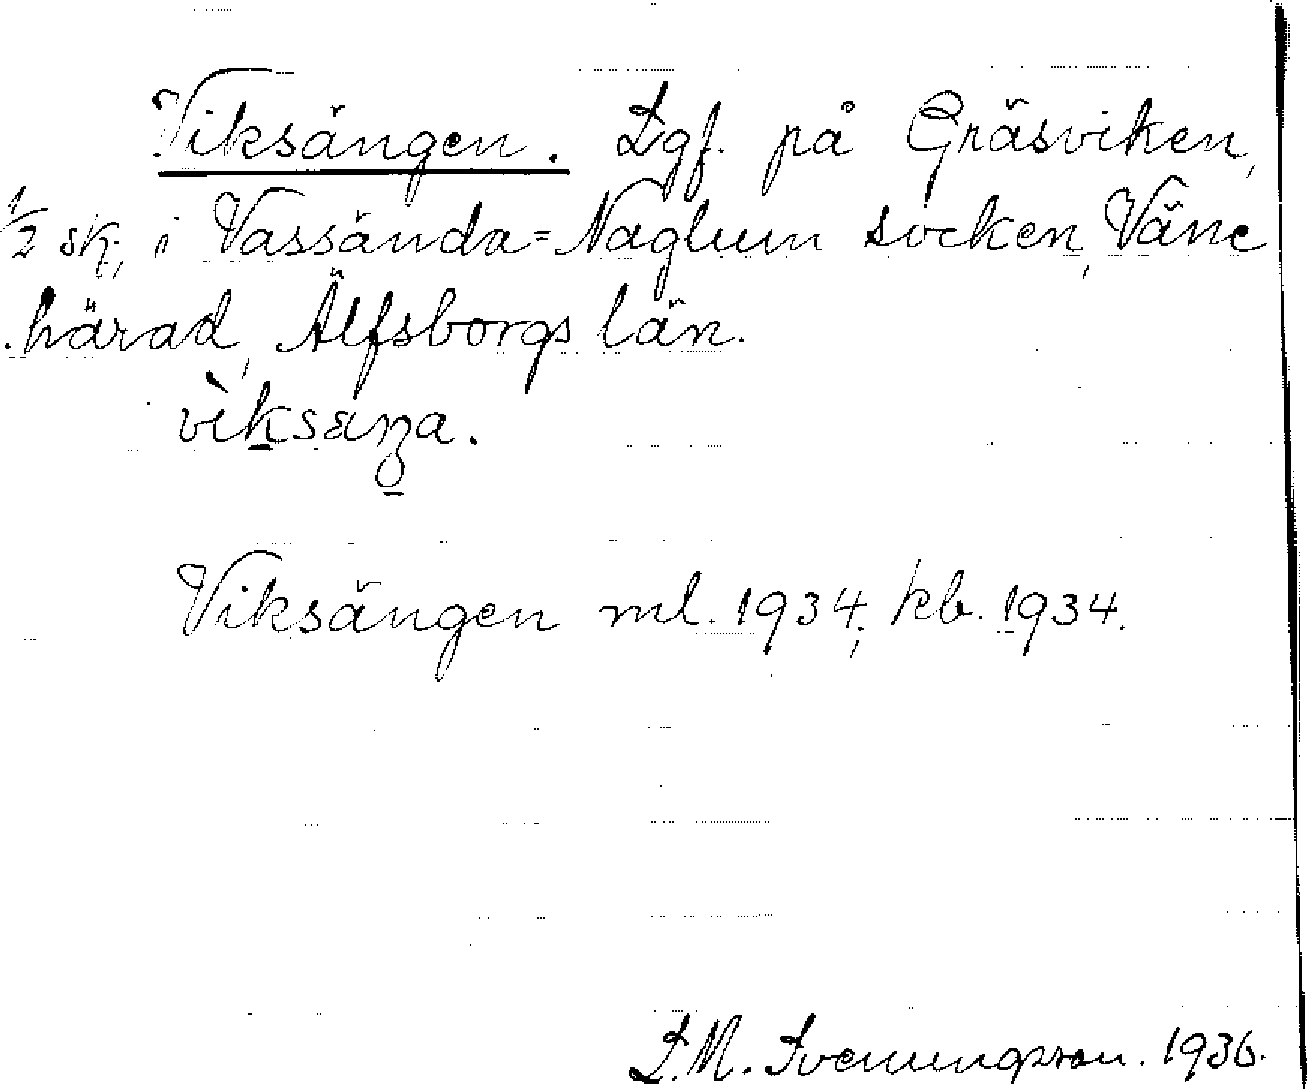 Viksängen. Lgf. på Gräsviken,
1/2 sk., i Vassända=Naglum socken, Väne
härad, Älfsborgs län.
vìksæŋa.
Viksängen ml. 1934; kb. 1934.
S. M. Svenungsson. 1936.